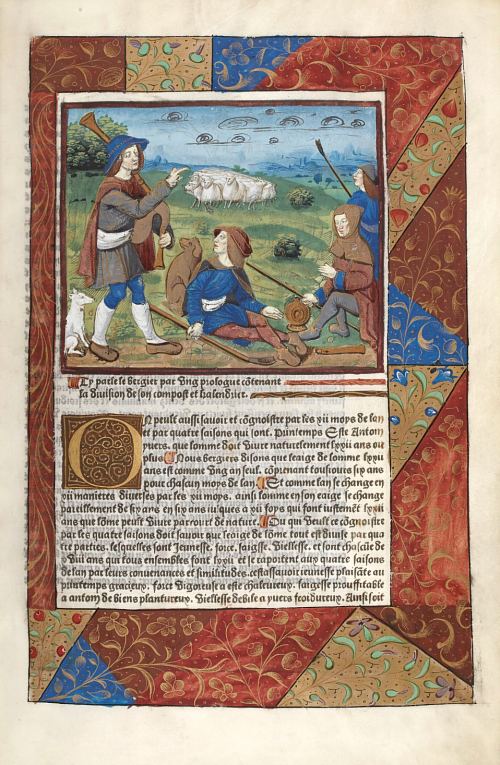 Cy parle le bergier par ung prologue cõtenant
la division de son compost et kalendrier.
ON peult aussi savoir et cõgnoistre par les xii moys de lan
et par quatre saisons qui sont. Printemps Este Anton
yvers, que lomme doit vivre naturelement lxxii ans ou
plus Nous bergiers disons que leaige de lomme lxxii
ans est comme ung an seul. cõprenant tousiours six ans
pour chascun moys de lan. Et comme lan se change en
xii manieres diverses par les xii moys. ainsi lomme en son eaige se change
pareillement de six ans en six ans iusques a xii foys qui font iustemẽt lxxii
ans que lõme peult vivre par court de nature. Ou qui veult ce cõgnoistre
par les quatre saisons doit savoir que leaige de lõme tout est divise par quatre
parties. lesquelles sont Jeunesse, force, saigesse, viellesse. et sont chascũe de
xviii ans qui tous ensembles font lxxii et se raportent aux quatre saisons
de lan par leurs convenances et similitudes. cestassavoir ieunesse plaisãte au
printemps gracieux. force vigoreuse a este chaleureux. saigesse prouffitable
a antom de biens plantureux. Viellesse debile a yvers froidureux. Ainsi soit